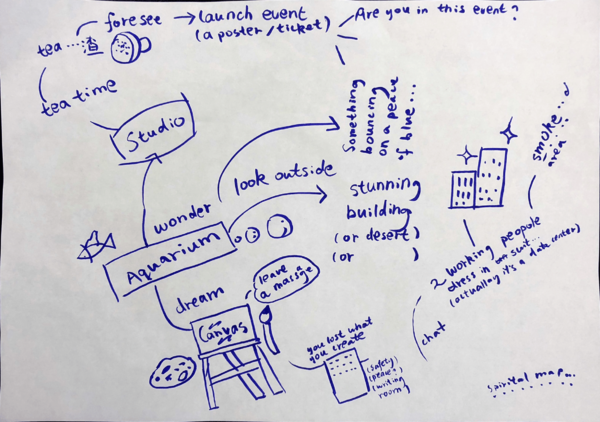 foresee
launch event
(a poster/ticket)
Are you in this event?
tea...渣
tea time
Studio
Something
bouncing
on a peace
of blue...
smoke...
area
look outside
stunning
building
(or desert)
(or )
wonder
Aquarium
dream
leave
a massage
Canvas
2 working peopole
dress in suit...
(actualley it's a date center)
chat
you lost what
you create
(safety)
(peace?)
(writing
room)
spirital map...